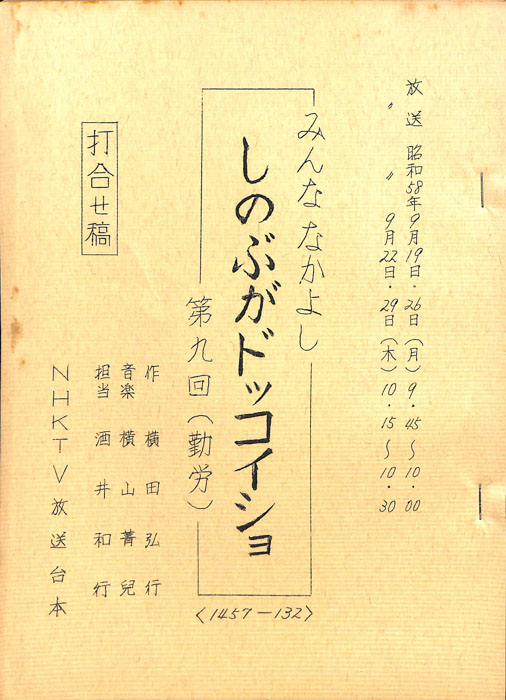 放送 昭和58年9月19日・26日(月) 9・45〜10・00
〃 〃 9月22日・29日(木) 10・15〜10・30
みんななかよし
しのぶがドッコイショ
第九回(勤労)
<1457-132>
打合せ稿
作 横田弘行
音楽 横山菁児
担当 酒井和行
NHKTV放送台本